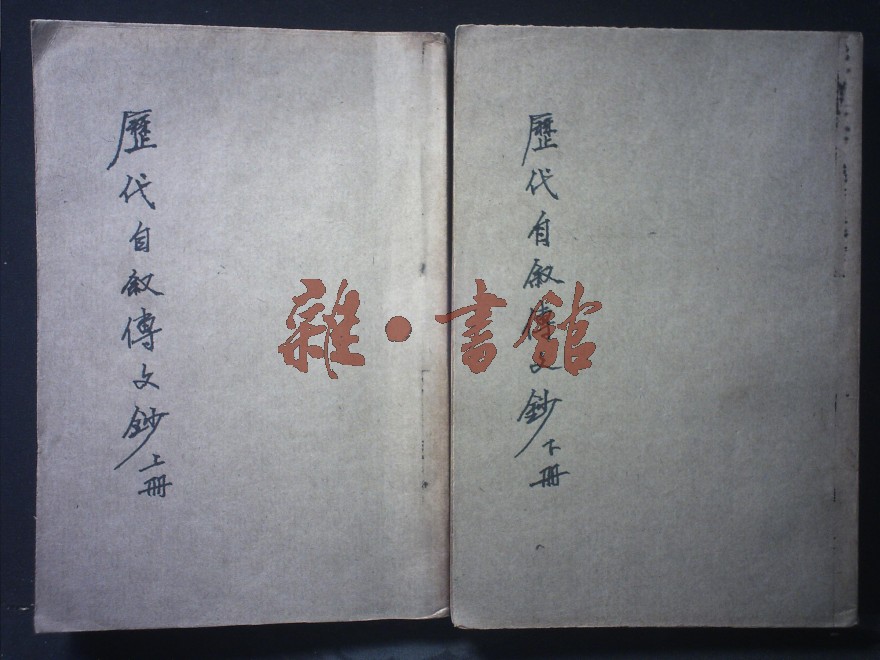 歷代自叙傳文鈔上冊
歷代自叙傳文鈔下冊
雜·書館